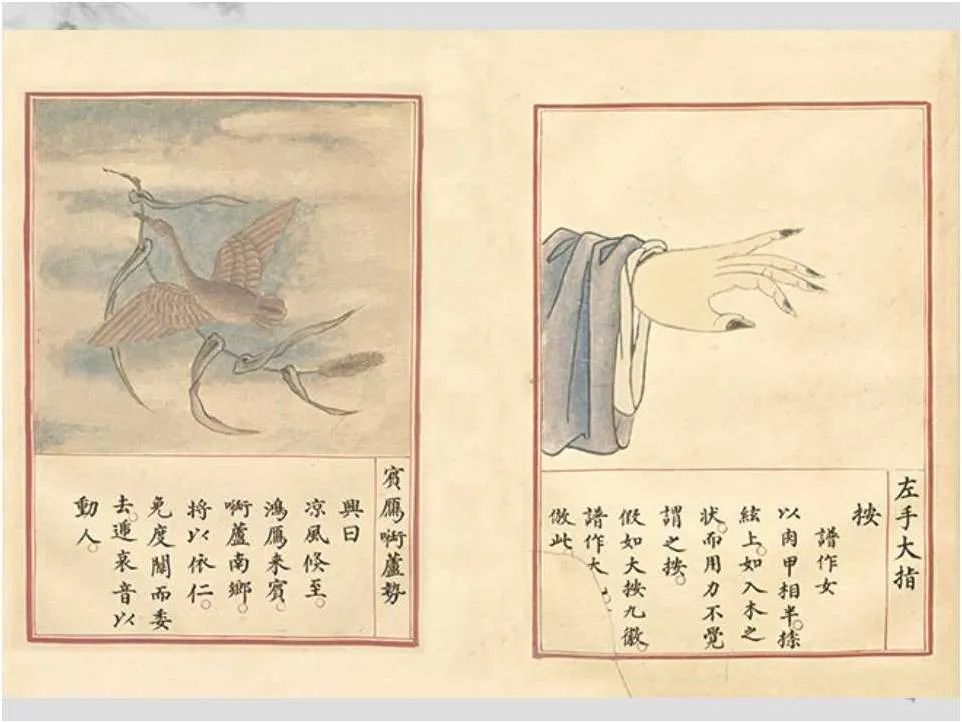 左手大指
按
譜作女
以肉甲相半。捺
絃上。如入木之
狀。而用力不覺
謂之按。
假如大按九徽。
譜作大
倣此
賓鴈啣蘆勢
興曰
凉風倏至。
鴻鴈来賓。
啣蘆南鄉。
将以依仁。
免度關而委
去。遞哀音以
動人。